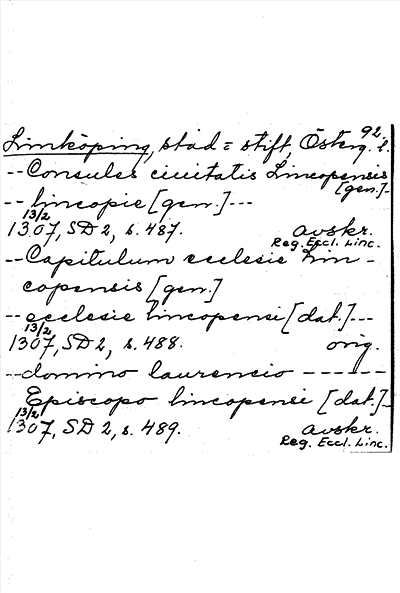 92.
Linköping, stad = stift, Österg. l.
-- Consules ciuitatis Lincopensis
[gen.]-
-- lincopie [gen.]---
13/2
1307, SD 2, s. 487. avskr.
Reg. Eccl. Linc.
-- Capitulum ecclesie Lin-
copensis [gen.]
-- ecclesie lincopensi [dat.]---
13/2
1307, SD 2, s. 488. orig.
-- domino laurencio ------
Episcopo lincopensi [dat.]-
13/2
1307, SD 2, s. 489. avskr.
Reg. Eccl. Linc.